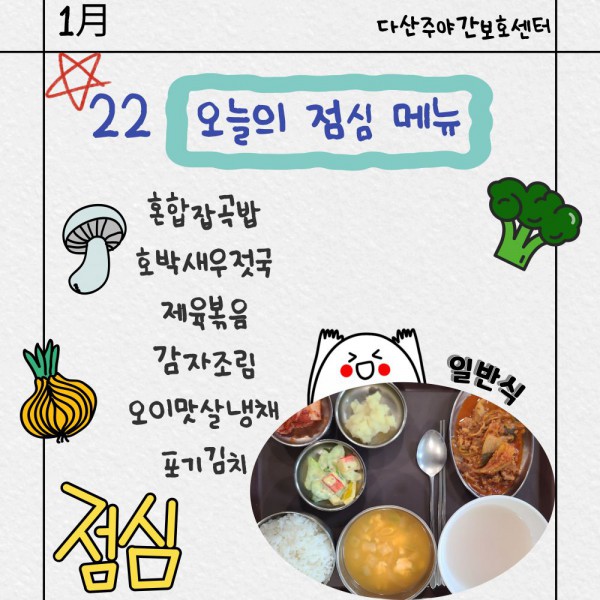 1月
다산주야간보호센터
22 오늘의 점심 메뉴
혼합잡곡밥
호박새우젓국
제육볶음
감자조림
오이맛살냉채
포기김치
일반식
점심